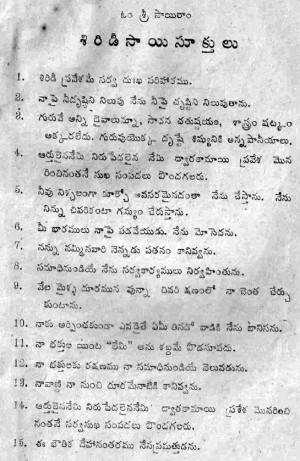 ఓం శ్రీ సాయిరాం
శిరిడి సాయి సూక్తులు
1. శిరిడి ప్రవేశమే సర్వ దుఃఖ పరిహారము.
2. నాపై నీదృష్టిని నిలుపు నేను నీపై దృష్టిని నిలుపుతాను.
3. గురువే అన్ని దైవాలున్నూ, సాధన చతుషయం, శాస్త్రం షట్కం
అక్కరలేదు. గురువుయొక్క దృష్టే శిష్యునికి అన్నపానీయాలు.
4. ఆర్తులైననేమి నిరుపేదలైన నేమి ద్వారకామాయి ప్రవేశ మొన
రించినంతనే సుఖ సంపదలు పొందగలరు.
5. నీవు నిశ్చలంగా కూర్చో ఆవసరమైనదంతా నేను చేస్తాను. నేను
నిన్ను చివరికంటా గమ్యం చేరుస్తాను.
6. మీ భారములు నాపై పడవేయుడు. నేను మోసెదను.
7. నన్ను నమ్మినవారి నెన్నడు పతనం కానివ్వను.
8. సమాధినుండియే నేను సర్వకార్యములు నిర్వహింతును.
9. వేల మైళ్ళ దూరమున వున్నా చివరి క్షణంలో నా చెంత చేర్చు
కుంటాను.
10. నాకు అర్పించకుండా ఎవరైతే ఏమి తినరో వాడికి నేను బానిసను.
11. నా భక్తుల యింట "లేమి" అను శబ్దమే పొడసూపదు.
12. నా భక్తులకు రక్షణము నా సమాధినుండియే వెలువడును.
13. నావాణి నా నుంచి దూరమేనాటికి కానివ్వను.
14. ఆర్తులైననేమి నిరుపేదలైననేమి ద్వారకామాయి ప్రవేశ మొనరించి
నంతనే సర్వసుఖ సంపదలు పొందగలరు.
15. ఈ భౌతిక దేహానంతరము నేనప్రమత్తుడను.